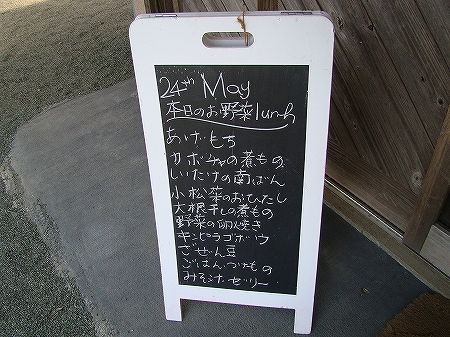 24th May
本日のお野菜lunch
あげもち
カボチャの煮もの
しいたけの南ばん
小松菜のおひたし
大根干しの煮もの
野菜の卵焼き
キンピラゴボウ
ごぜん豆
ごはん.つけもの
みそ汁.ゼリー